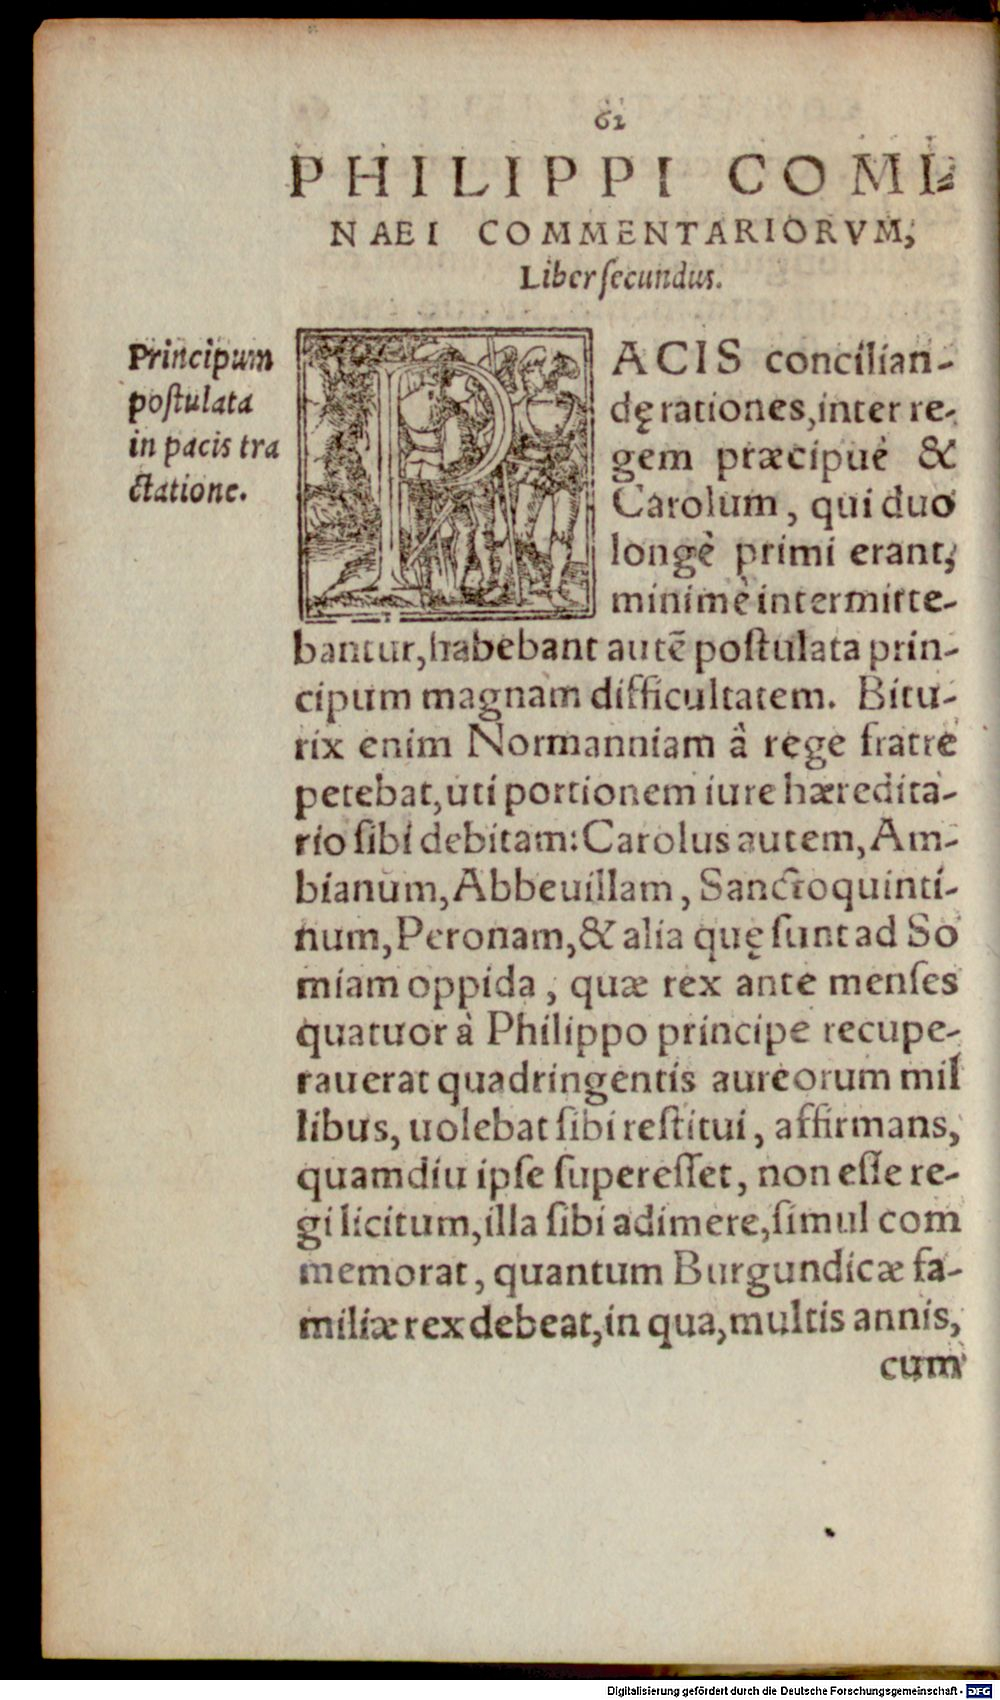 62
PHILIPPI COMI-
NAEI COMMENTARIORVM,
Liber ſecundus.
Principum
poſtulata
in pacis tra
ctatione.
PACIS concilian-
dę rationes, inter re-
gem præcipuè &
Carolum, qui duo
longè primi erant,
minimè intermitte-
bantur, habebant autẽ poſtulata prin-
cipum magnam difficultatem. Bitu-
rix enim Normanniam â rege fratre
petebat, uti portionem iure hæredita-
rio ſibi debitam: Carolus autem, Am-
bianum, Abbeuillam, Sanctoquinti-
num, Peronam, & alia quę ſunt ad So
miam oppida, quæ rex ante menſes
quatuor à Philippo principe recupe-
rauerat quadringentis aureorum mil
libus, uolebat ſibi reſtitui, affirmans,
quamdiu ipſe ſupereſſet, non eſſe re-
gi licitum, illa ſibi adimere, ſimul com
memorat, quantum Burgundicæ fa-
miliæ rex debeat, in qua, multis annis,
cum
Digitalisierung gefördert durch die Deutsche Forschungsgemeinschaft - DFG